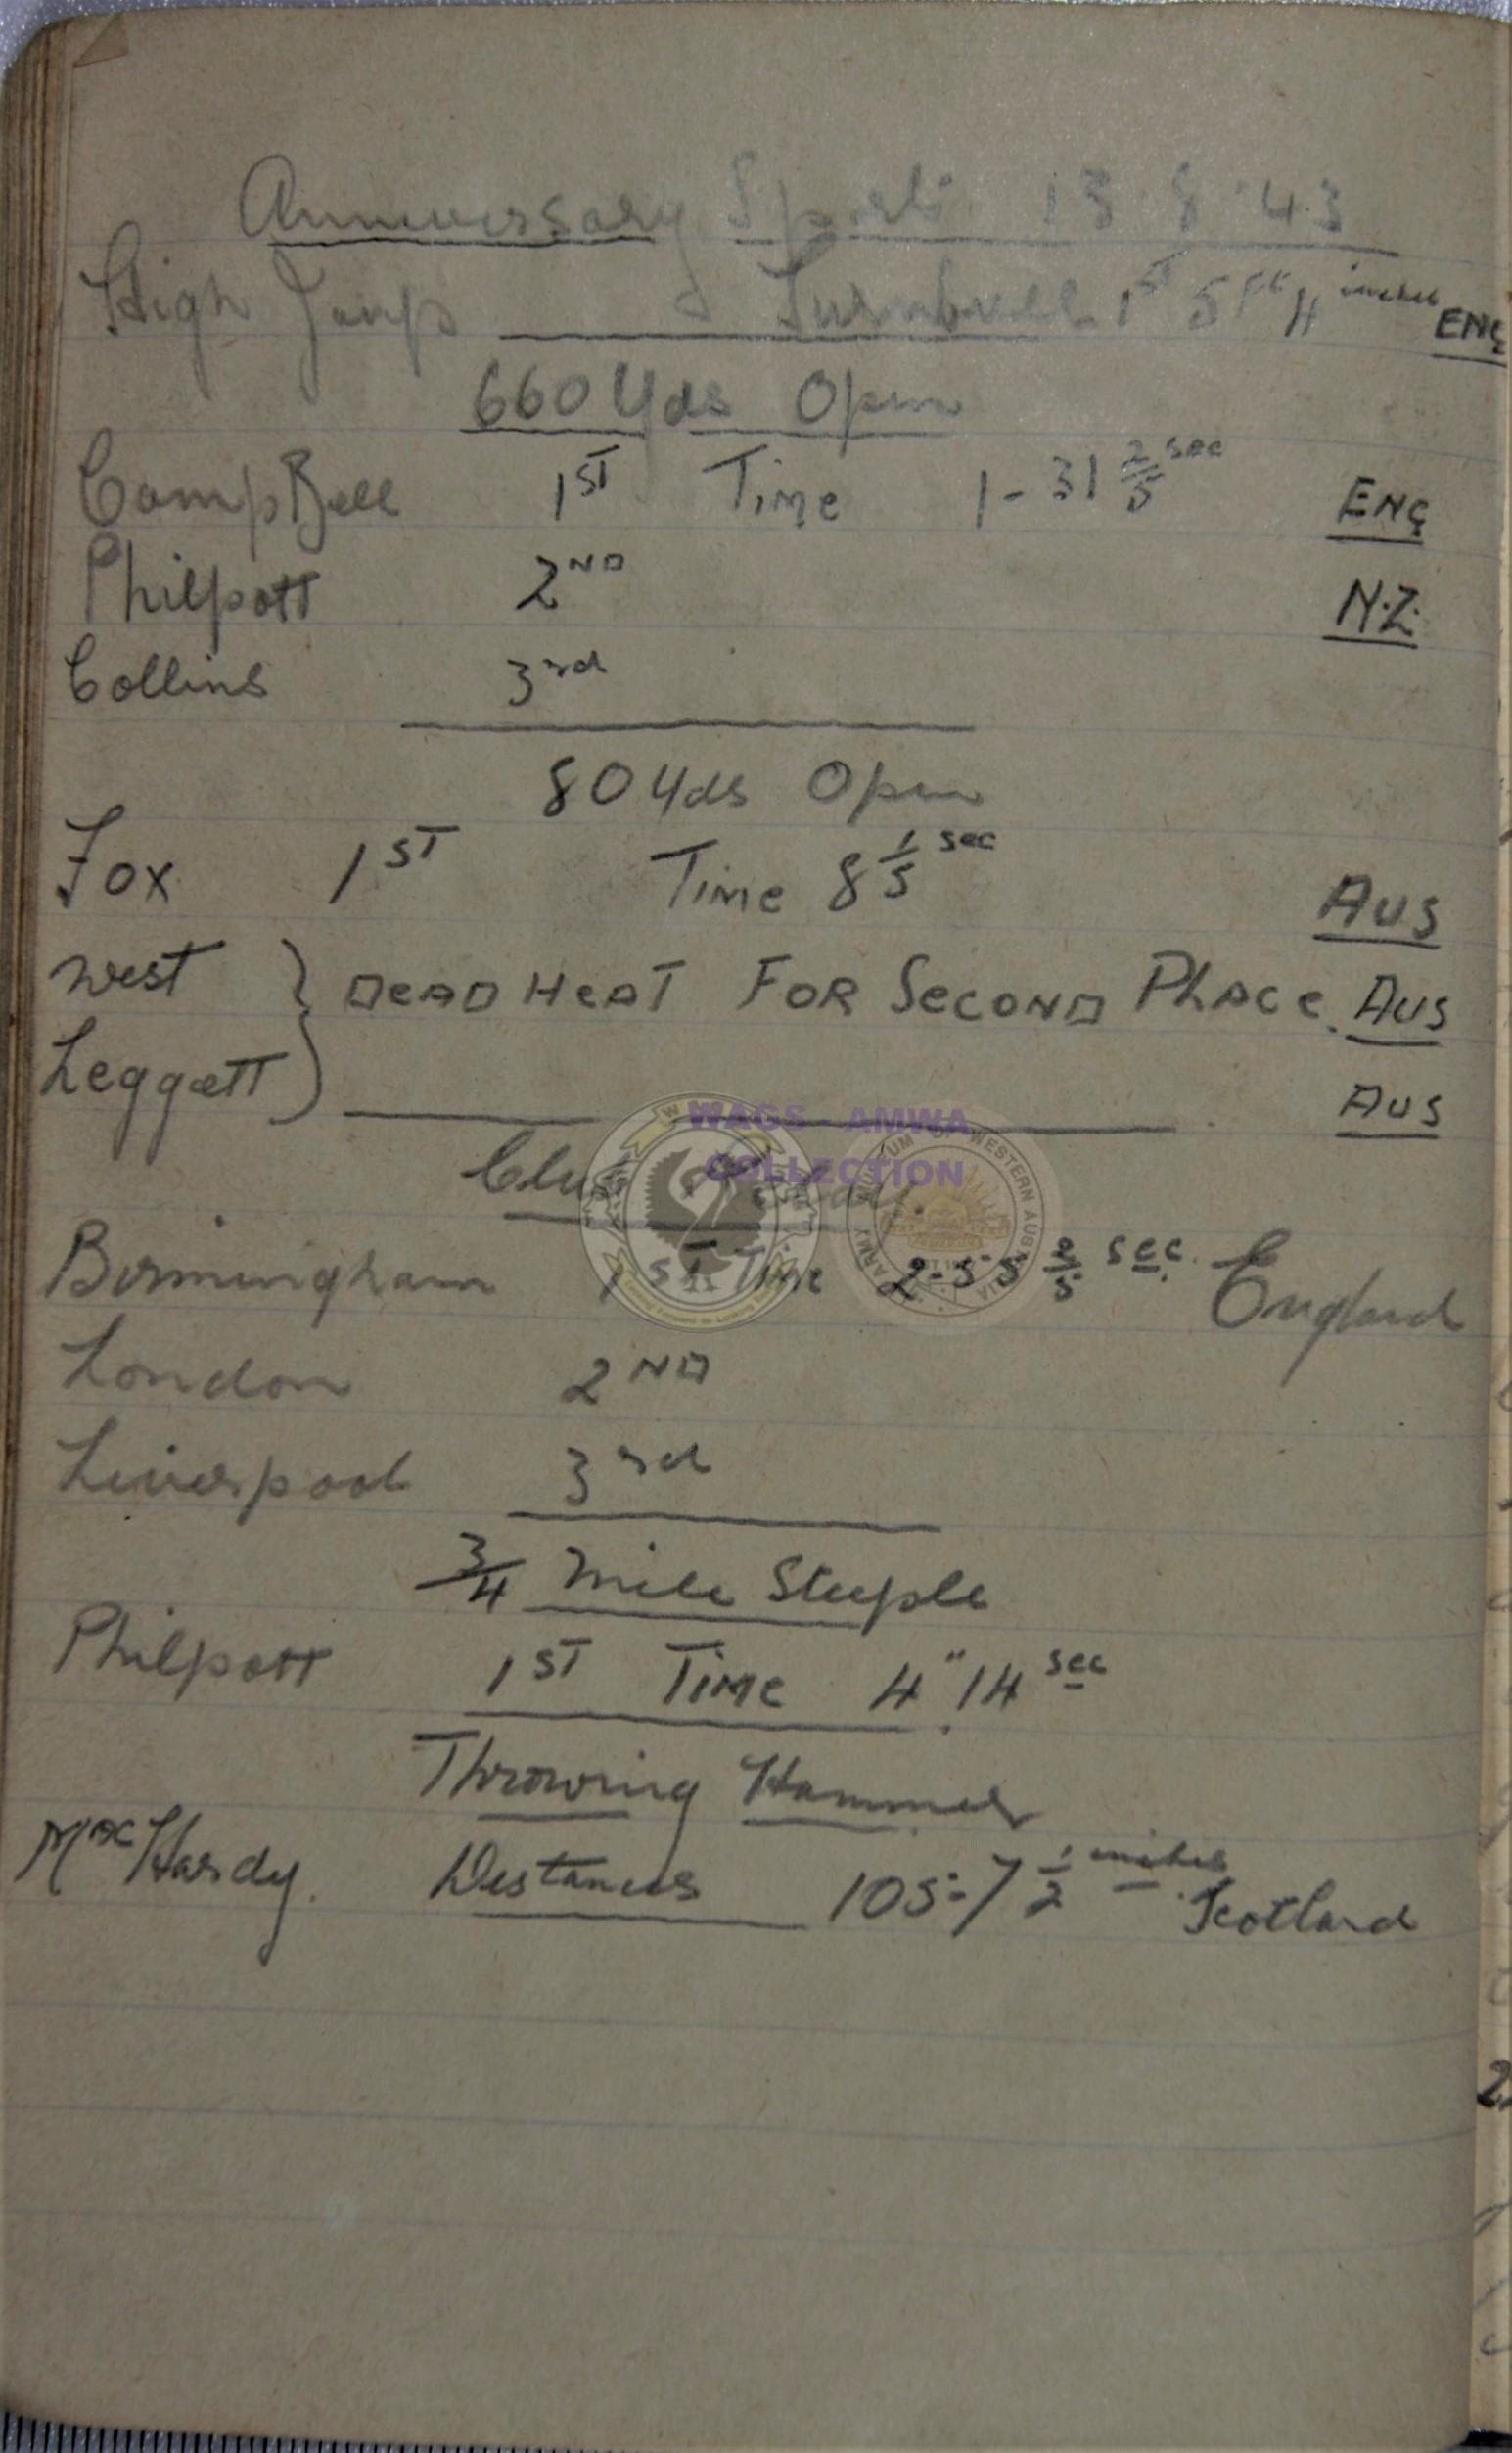 Anniversary Sports 13.8.43
High Jump Turnbull 1st 5 ft 4 inches ENG
660 Yds Open
CampBell 1ST Time 1-31 2/5 sec ENG
Philpott 2ND N.Z.
Collins 3rd
80 Yds Open
Fox 1ST Time 8 1/5 sec AUS
West } DEAD HEAT FOR SECOND PLACE. AUS
Leggett } AUS
WAGS - AMWA
COLLECTION
Birmingham 1ST Time 2-55 2/5 sec. England
London 2ND
Liverpool 3rd
3/4 Mile Steeple
Philpott 1ST Time 4"14 sec
Throwing Hammer
MacHardy. Distances 105-7 1/2 inches Scotland